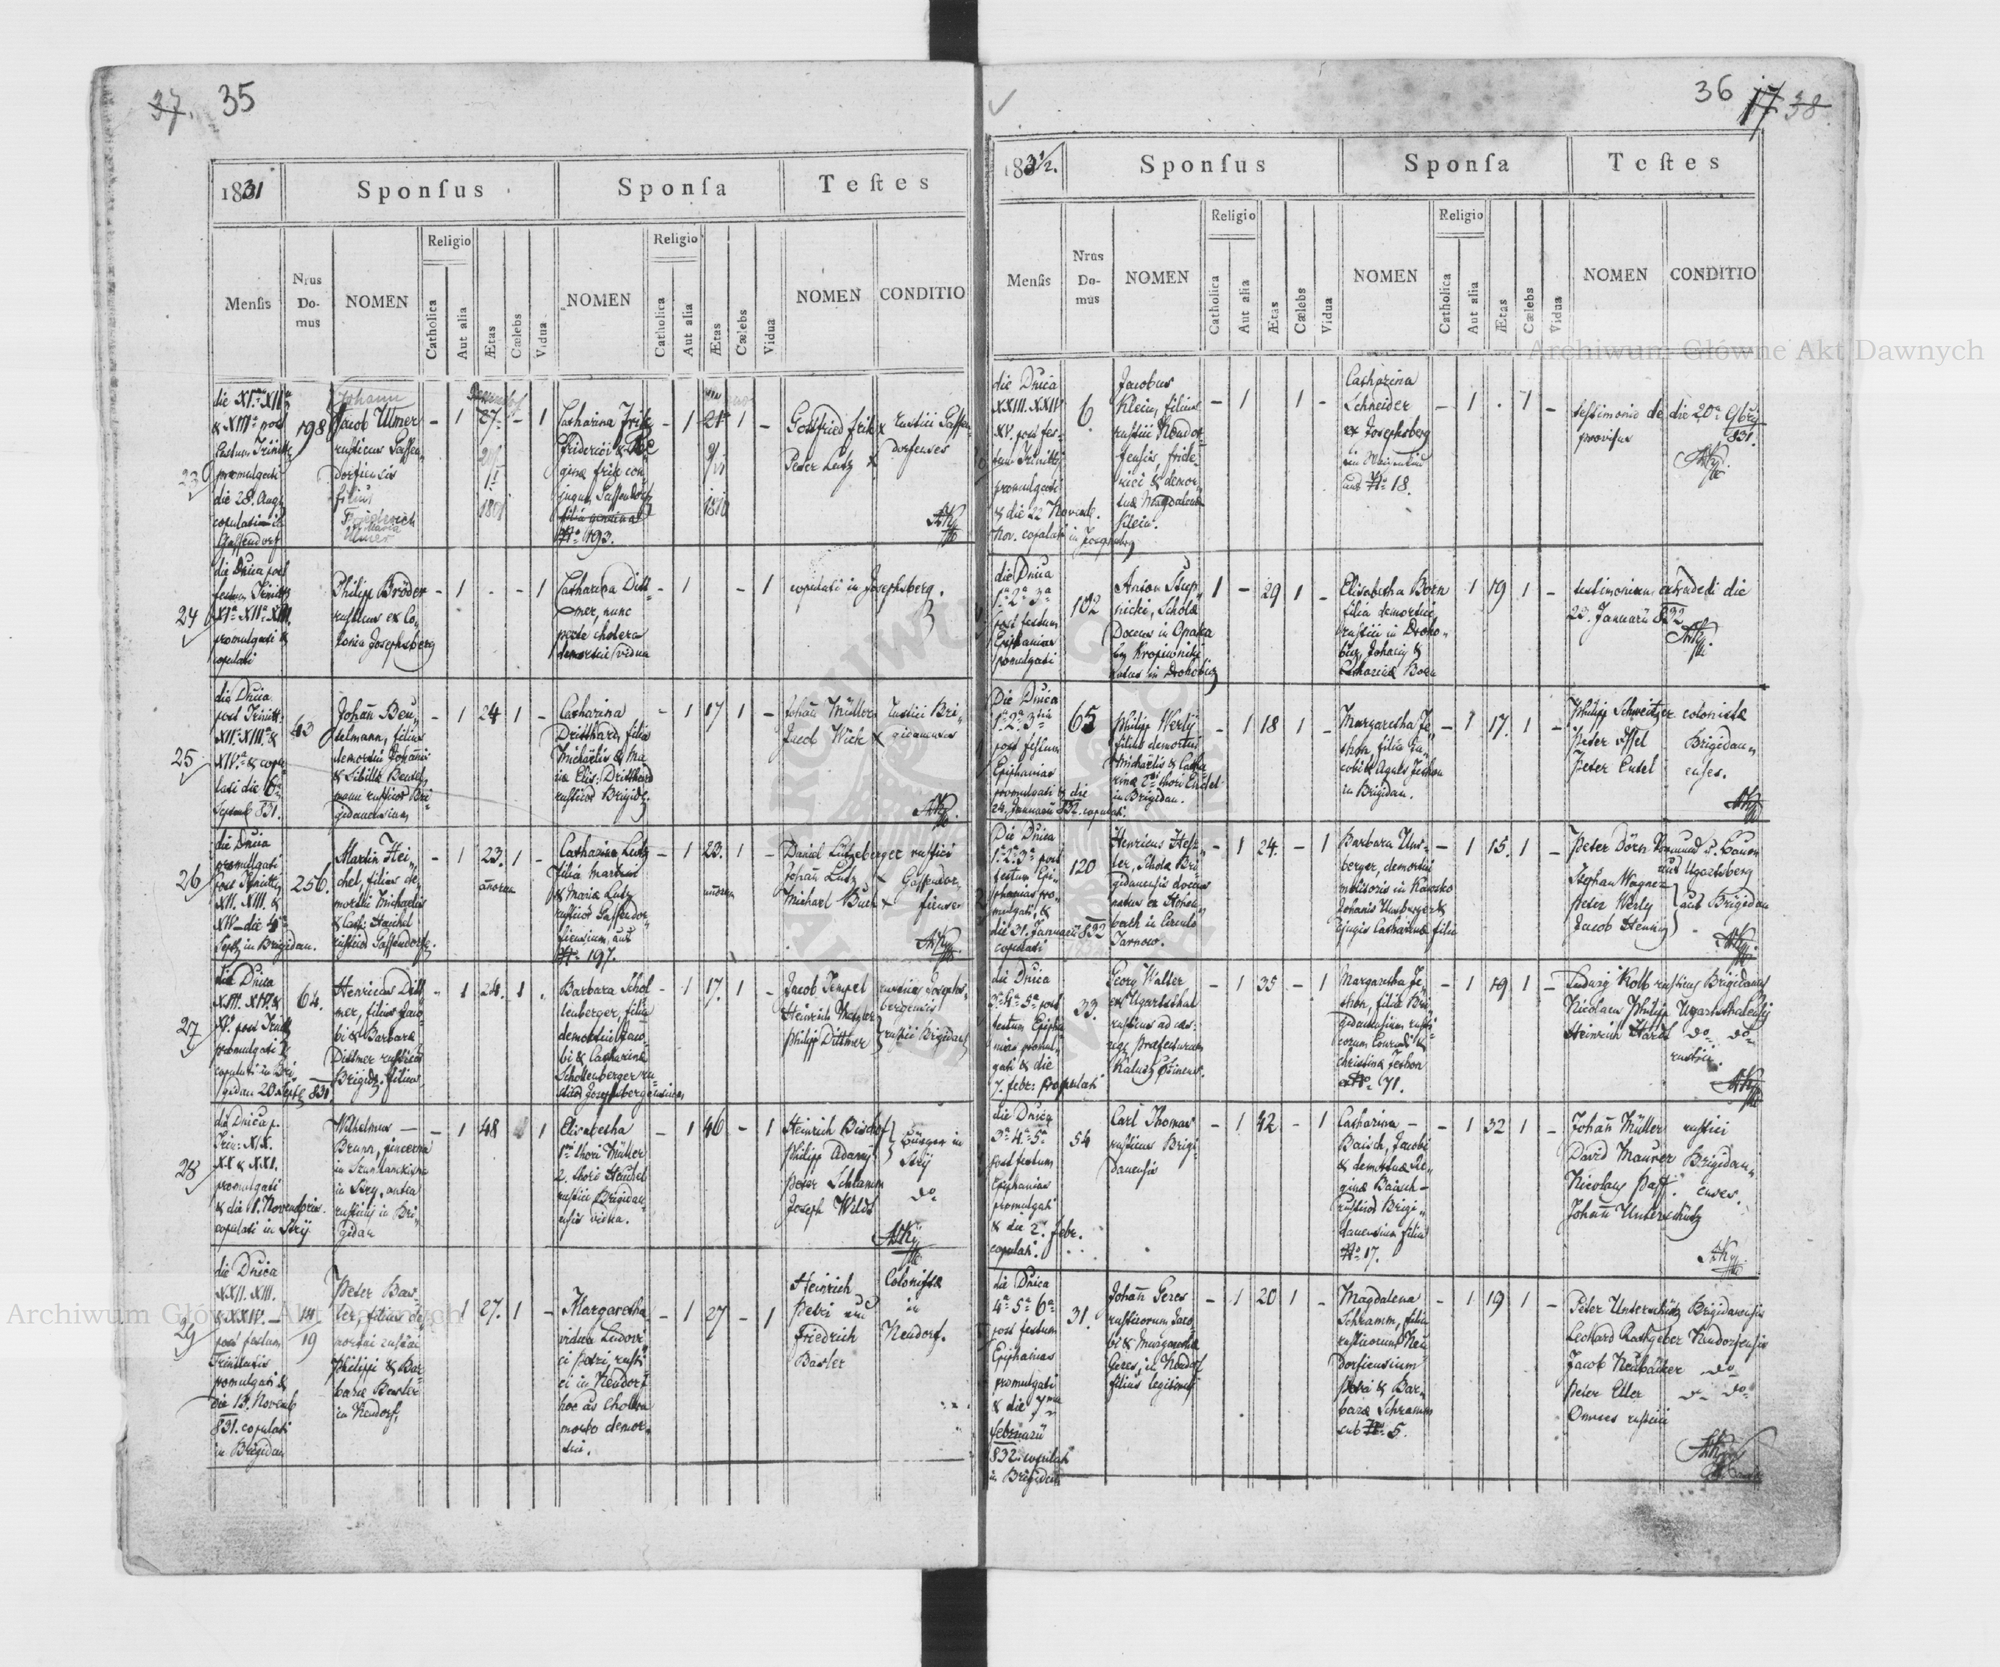 37. 35
1831
Sponsus
Sponsa
Testes
Mensis
Nrus Domus
NOMEN
Religio
Catholica
Aut alia
Ætas
Cælebs
Vidua
NOMEN
Religio
Catholica
Aut alia
Ætas
Cælebs
Vidua
NOMEN
CONDITIO
23
die XIa XIIa
& XIIIa post
promulgati
die 28. Aug.
copulati in
198
Johann
Jacob Ulmer
rusticus Gassen
dorfiensis
filius
Friederich
Ulmer
- 1 27. - 1
1801
Catharina Fritz
Friderici &
ginæ Fritz con
jugum Gassendorf
No 193.
- 1 21 1 -
1810
Gottfried Fritz
Peter Lutz
rustici Gassen
dorfenses
24
die Dnica post
festum Trinitts
XIa XIIa XIII
promulgati &
copulati
Philipp Bröder
rusticus ex Co„
lonia Josephsberg
- 1 . - 1
Catharina Ditt„
mer, nunc
peste cholera
demortui vidua
- 1 - 1
copulati in Josephsberg.
25
die Dnica
post Trinitt:
XIIa XIIIa &
XIVa & copu
lati die 6a
Septemb 831.
43
Johañ Beu„
telmann, filius
demortui Johañis
& Sibilla Beutel„
mann rusticor Bri
gidauensium
- 1 24 1 -
Catharina
Dritthard, filia
Michaelis & Ma
riæ Elis: Dritthard
rusticor Brigid.
- 1 17 1 -
Johañ Müller
Jacob Wick
rustici Bri„
gidauenses
26
die Dnica
promulgati
post Trinitts
XII. XIII. &
XIV die 4a
Septb in Brigidau.
256.
Martin Hei„
chel, filius de„
mortui Michaelis
& Cath: Haichel
rusticor Gassendorf.
- 1 23. 1 -
añorum
Catharina Lutz
filia Martini
& Mariæ Lutz
rusticor Gassendor„
fiensium, aus
No 197.
- 1 23. 1 -
añorum
Daniel Lutzeberger rustici
Johañ Lutz
Michael Buch
Gassendor„
fienses
27
die Dnica
XIII. XIV. &
XV. post Trinitts
promulgati &
copulati in Bri„
gidau 20 Septb 831.
64.
Henricus Ditt
mer, filius Jaco„
bi & Barbaræ
Dittmer rusticor
Brigid. filius
- 1 24. 1 .
Barbara Schol
lenberger, filia
demortui Jaco„
bi & Catharina
Schollenberger ru„
sticor Josephsbergensium
- 1 17. 1 -
Jacob Tempel
Heinrich Metzler
Philipp Dittmer
rusticus Josephs„
bergensis
rustici Brigidau
28
die Dnica p.
Trin: XIX.
XX & XXI.
promulgati
& die 1. Novembris
copulati in Stry
Wilhelmus
Brunn, pincerna
in
in Stry, antea
rusticus in Bri„
gidau
- 1 48 1
Elisabetha
1mi thori Müller
2. thori Heichel
rustici Brigidau„
ensis vidua.
- 1 46 - 1
Heinrich Bischof
Philipp Adamy
Peter Schlamm
Joseph Wild
Bürger in
Stry
do
29
die Dnica
XXII. XXIII.
& XXIV.
post festum
Trinitatis
promulgati &
die 13. Novemb
831. copulati
in Brigidau
14
19
Peter Bas„
ler, filius de„
mortui rustici
Philippi & Bar„
baræ Basler
in Neudorf.
- 1 27. 1 -
Margaretha
vidua Ludovi„
ci Petri, rusti
ci in Neudorf
hoc as Cholera
morbo demor„
tui.
- 1 27 - 1
Heinrich
Petri und
Friedrich
Basler
Colonistæ
in
Neudorf.
36 17 38
183½.
Sponsus
Sponsa
Testes
Mensis
Nrus Domus
NOMEN
Religio
Catholica
Aut alia
Ætas
Cælebs
Vidua
NOMEN
Religio
Catholica
Aut alia
Ætas
Cælebs
Vidua
NOMEN
CONDITIO
die Dnica
XXIII. XXIV
XV. post fes„
tum Trinitts
promulgati
& die 22 Novemb.
Nov. copulati in Josephsberg
6
Jacobus
Klein, filius
rustici Neudor
fensis, Fride„
rici & demor„
tuæ Magdalenæ
Klein.
- 1 1 -
Catharina
Schneider
ex Josephsberg
No 18.
- 1 . 1 -
testimonio de die 20a 9bris
provisus 831.
die Dnica
1a 2a 3a
post festum
Epiphanias
promulgati
102
Anton Step„
nicki, Scholæ
Docens in Opaka
natus in Drohobicz
1 - 29 1 -
Elisabetha Born
filia demortui
rustici in Droho„
bicz, Johañis &
Catharinæ Born
1 19 1 -
testimonium extradedi die
23. Januarii 832
Die Dnica
1a 2a 3tia
post festum
Epiphanias
promulgati & die
24. Januarii 832. copulati.
65
Philipp Werly
filius demortui
Michaelis & Catha
rinæ
in Brigidau.
- 1 18 1 -
Margaretha Je„
shon, filia Ja„
cobi & Agnes Jeshon
in Brigidau.
- 1 17. 1 -
Philipp Schweitzer colonistæ
Peter Issel
Peter Entel
Brigidau„
enses.
Die Dnica
1a 2a 3a post
festum Epi„
phanias pro„
mulgati, &
die 31. Januarii 832
copulati
120
Henricus Hel„
ler, Schola Bri„
gidauensis docens
natus ex Hohen
bach in Circulo
Tarnow.
- 1 24. - 1
Barbara Uns„
berger, demortui
molitoris in
Johanis Unsberger &
conjugis Catharinæ filia
- 1 15. 1 -
Peter Dörn Vormund u. Bauer
aus Ugartsberg
Stephan Wagner
Peter Werly
Jacob Hennig
aus Brigidau
die Dnica
3a 4a 5a post
festum Epipha
nias promul„
gati & die
7. febr: copulati
33.
Georg Walter
ex Ugartsthal
rusticus ad cæs:
reg: præfecturam
Kalusz pertinens.
- 1 35 - 1
Margaretha Je„
shon, filia Bri„
gidauensium rusti
corum Conradi &
Christina Jeshon
ex No 71.
- 1 19 1 -
Ludwig Kolb rusticus Brigidaus
Nicolaus Philipp Ugartsthalensis
Heinrich Hardt do do
rustici
die Dnica
3a 4a 5a
post festum
Epiphanias
promulgati
& die 2. febr.
copulati.
54
Carl Thomas
rusticus Brigi„
dauensis
- 1 42 - 1
Catharina
Baisch, Jacobi
& demortuæ Re„
ginæ Baisch
rusticor Brigi„
dauensium filia
No 17.
- 1 32 1 -
Johañ Müller
David Maurer
Nicolaus Pfaff
Johañ Unterschütz
rustici
Brigidau„
enses.
die Dnica
4a 5a 6a
post festum
Epiphanias
promulgati
& die 7ma
februarii
832 copulati
in Brigidau
31.
Johañ Geres
rusticorum Jaco„
bi & Margaretha
Geres, in Neudorf
filius legitimus
- 1 20 1 -
Magdalena
Schramm, filia
rusticorum Neu
dorfiensium
Petri & Bar„
baræ Schramm
sub No 5.
- 1 19 1 -
Peter Unterschütz Brigidauensis
Leohard Rathgeber Neudorfensis
Jacob Neubäcker do
Peter Eller do do
Omnes rustici
Archiwum Główne Akt Dawnych
Archiwum Główne Akt Dawnych